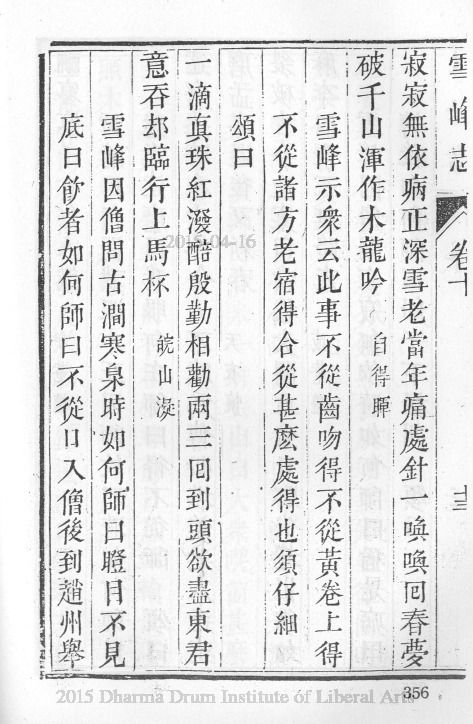 雪峰志 卷十 十三
寂寂無依病正深雪老當年痛處針一喚喚回春夢
破千山渾作木龍吟 自得暉
雪峰示衆云此事不從齒吻得不從黃卷上得
不從諸方老宿得合從甚麽處得也須仔細
頌曰
一滴真珠紅潑醅殷勤相勸兩三回到頭欲盡東君
意吞却臨行上馬杯 皖山凝
雪峰因僧問古澗寒泉時如何師曰瞪目不見
底曰飲者如何師曰不從口入僧後到趙州舉
2015-04-16
2015 Dharma Drum Institute of Liberal Arts
356